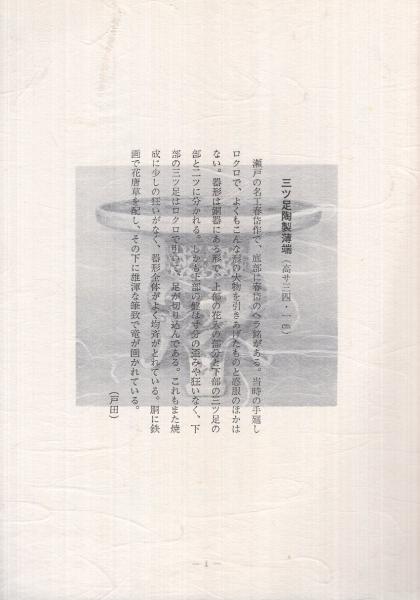 三ツ足陶製薄端(高サ三四・一㎝)
瀬戸の名工春岱作で、底部に春岱のヘラ銘がある。当時の手廻し
ロクロで、よくもこんな形の大物を引きあげたものと感服のほかは
ない。器形は銅器にある形で、上部の花入の部分と下部の三ツ足の
部と二ツに分かれる。しかも上部の盤は寸分の歪みや狂いなく、下
部の三ツ足はロクロで引いて、足が切り込んである。これもまた焼
成に少しの狂いがなく、器形全体がよく均斉がとれている。胴に鉄
画で花唐草を配し、その下に雄渾な筆致で竜が画かれている。
(戸田)
— 1 —